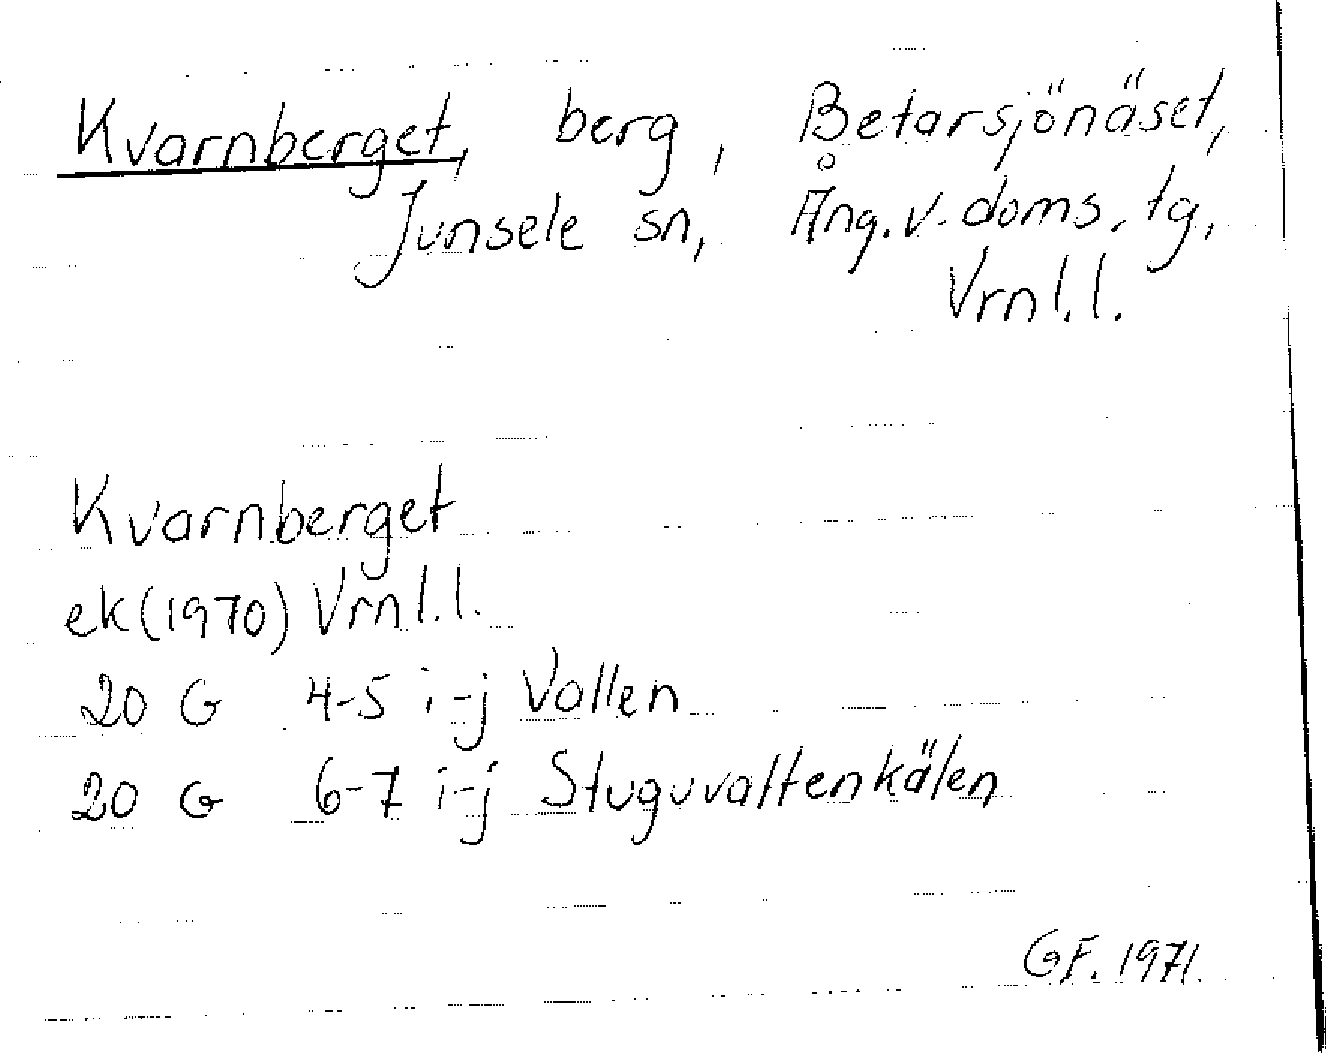 Kvarnberget, berg, Betarsjönäset,
Junsele sn, Ång. v. doms. tg,
Vrnl.l.
Kvarnberget
ek (1970) Vrnl.l.
20 G 4-5 i-j Vallen
20 G 6-7 i-j Stuguvattenkälen
GF. 1971.